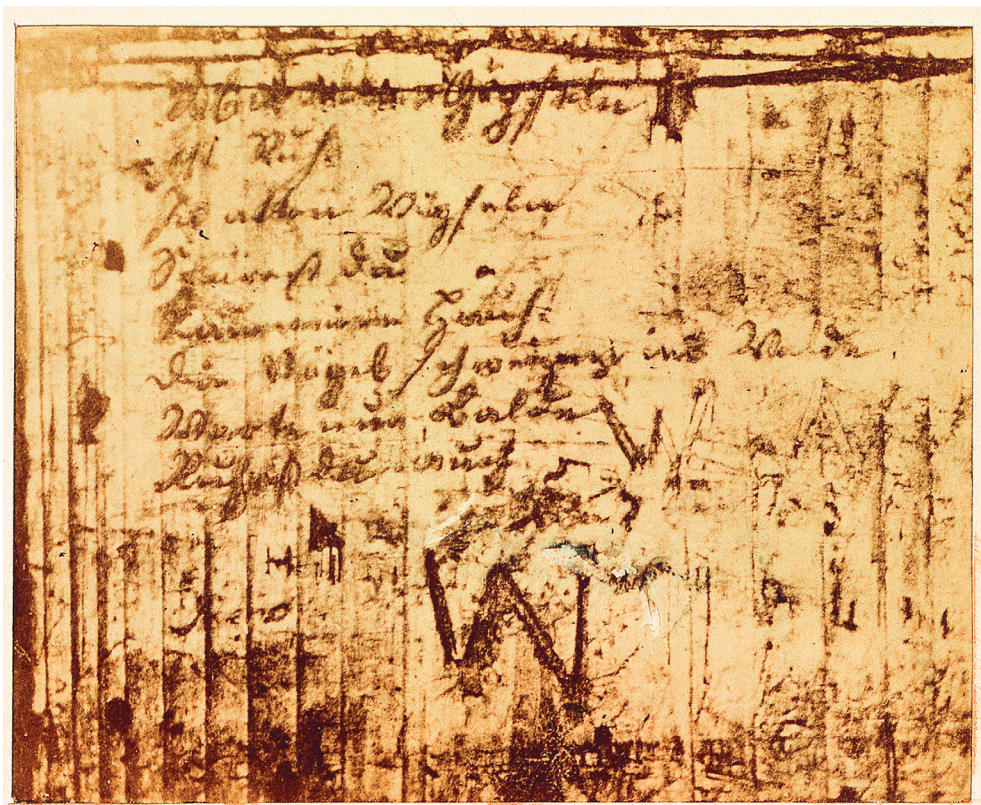 Über allen Gipfeln
Ist Ruh
In allen Wipfeln
Spürest Du
Kaum einen Hauch:
Die Vögel schweigen im Walde
Warte nur balde
Ruhest du auch